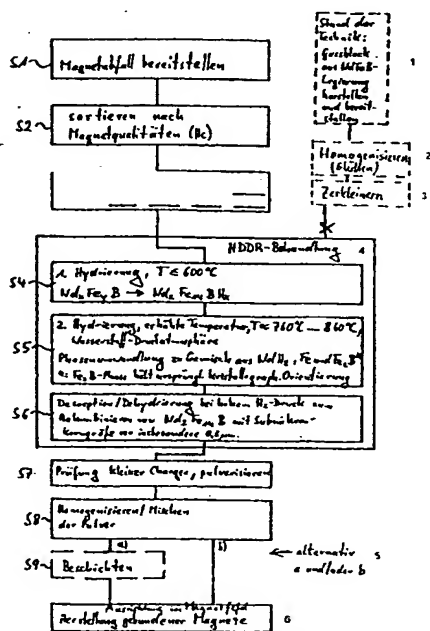 S1
Magnetabfall bereitstellen
S2
sortieren nach
Magnetqualitäten (Hc)
Stand der
Technik:
Gussblock
aus NdFeB-
Legierung
herstellen
und bereit-
stellen
1
Homogenisieren
(Glühen)
2
Zerkleinern
3
HDDR-Behandlung
4
S4
1. Hydrierung, T ≤ 600°C
Nd2 Fe14 B → Nd2 Fe14 B Hx
S5
2. Hydrierung, erhöhte Temperatur, T ≈ 760°C – 860°C,
Wasserstoff-Druckatmosphäre
Phasenumwandlung zu Gemisch aus NdH2, Fe und Fe2B
Fe2B-Phase hält ursprüngl. kristallograph. Orientierung
S6
Desorption/Dehydrierung bei hohem H2-Druck
Rekombinieren von Nd2 Fe14 B mit
Korngröße von insbesondere
S7
Prüfung kleiner Chargen, pulverisieren
S8
Homogenisieren/Mischen
der Pulver
a)
b)
alternativ
a und/oder b
5
S9
Beschichten
Ausrichtung im Magnetfeld
Herstellung gebundener Magnete
6